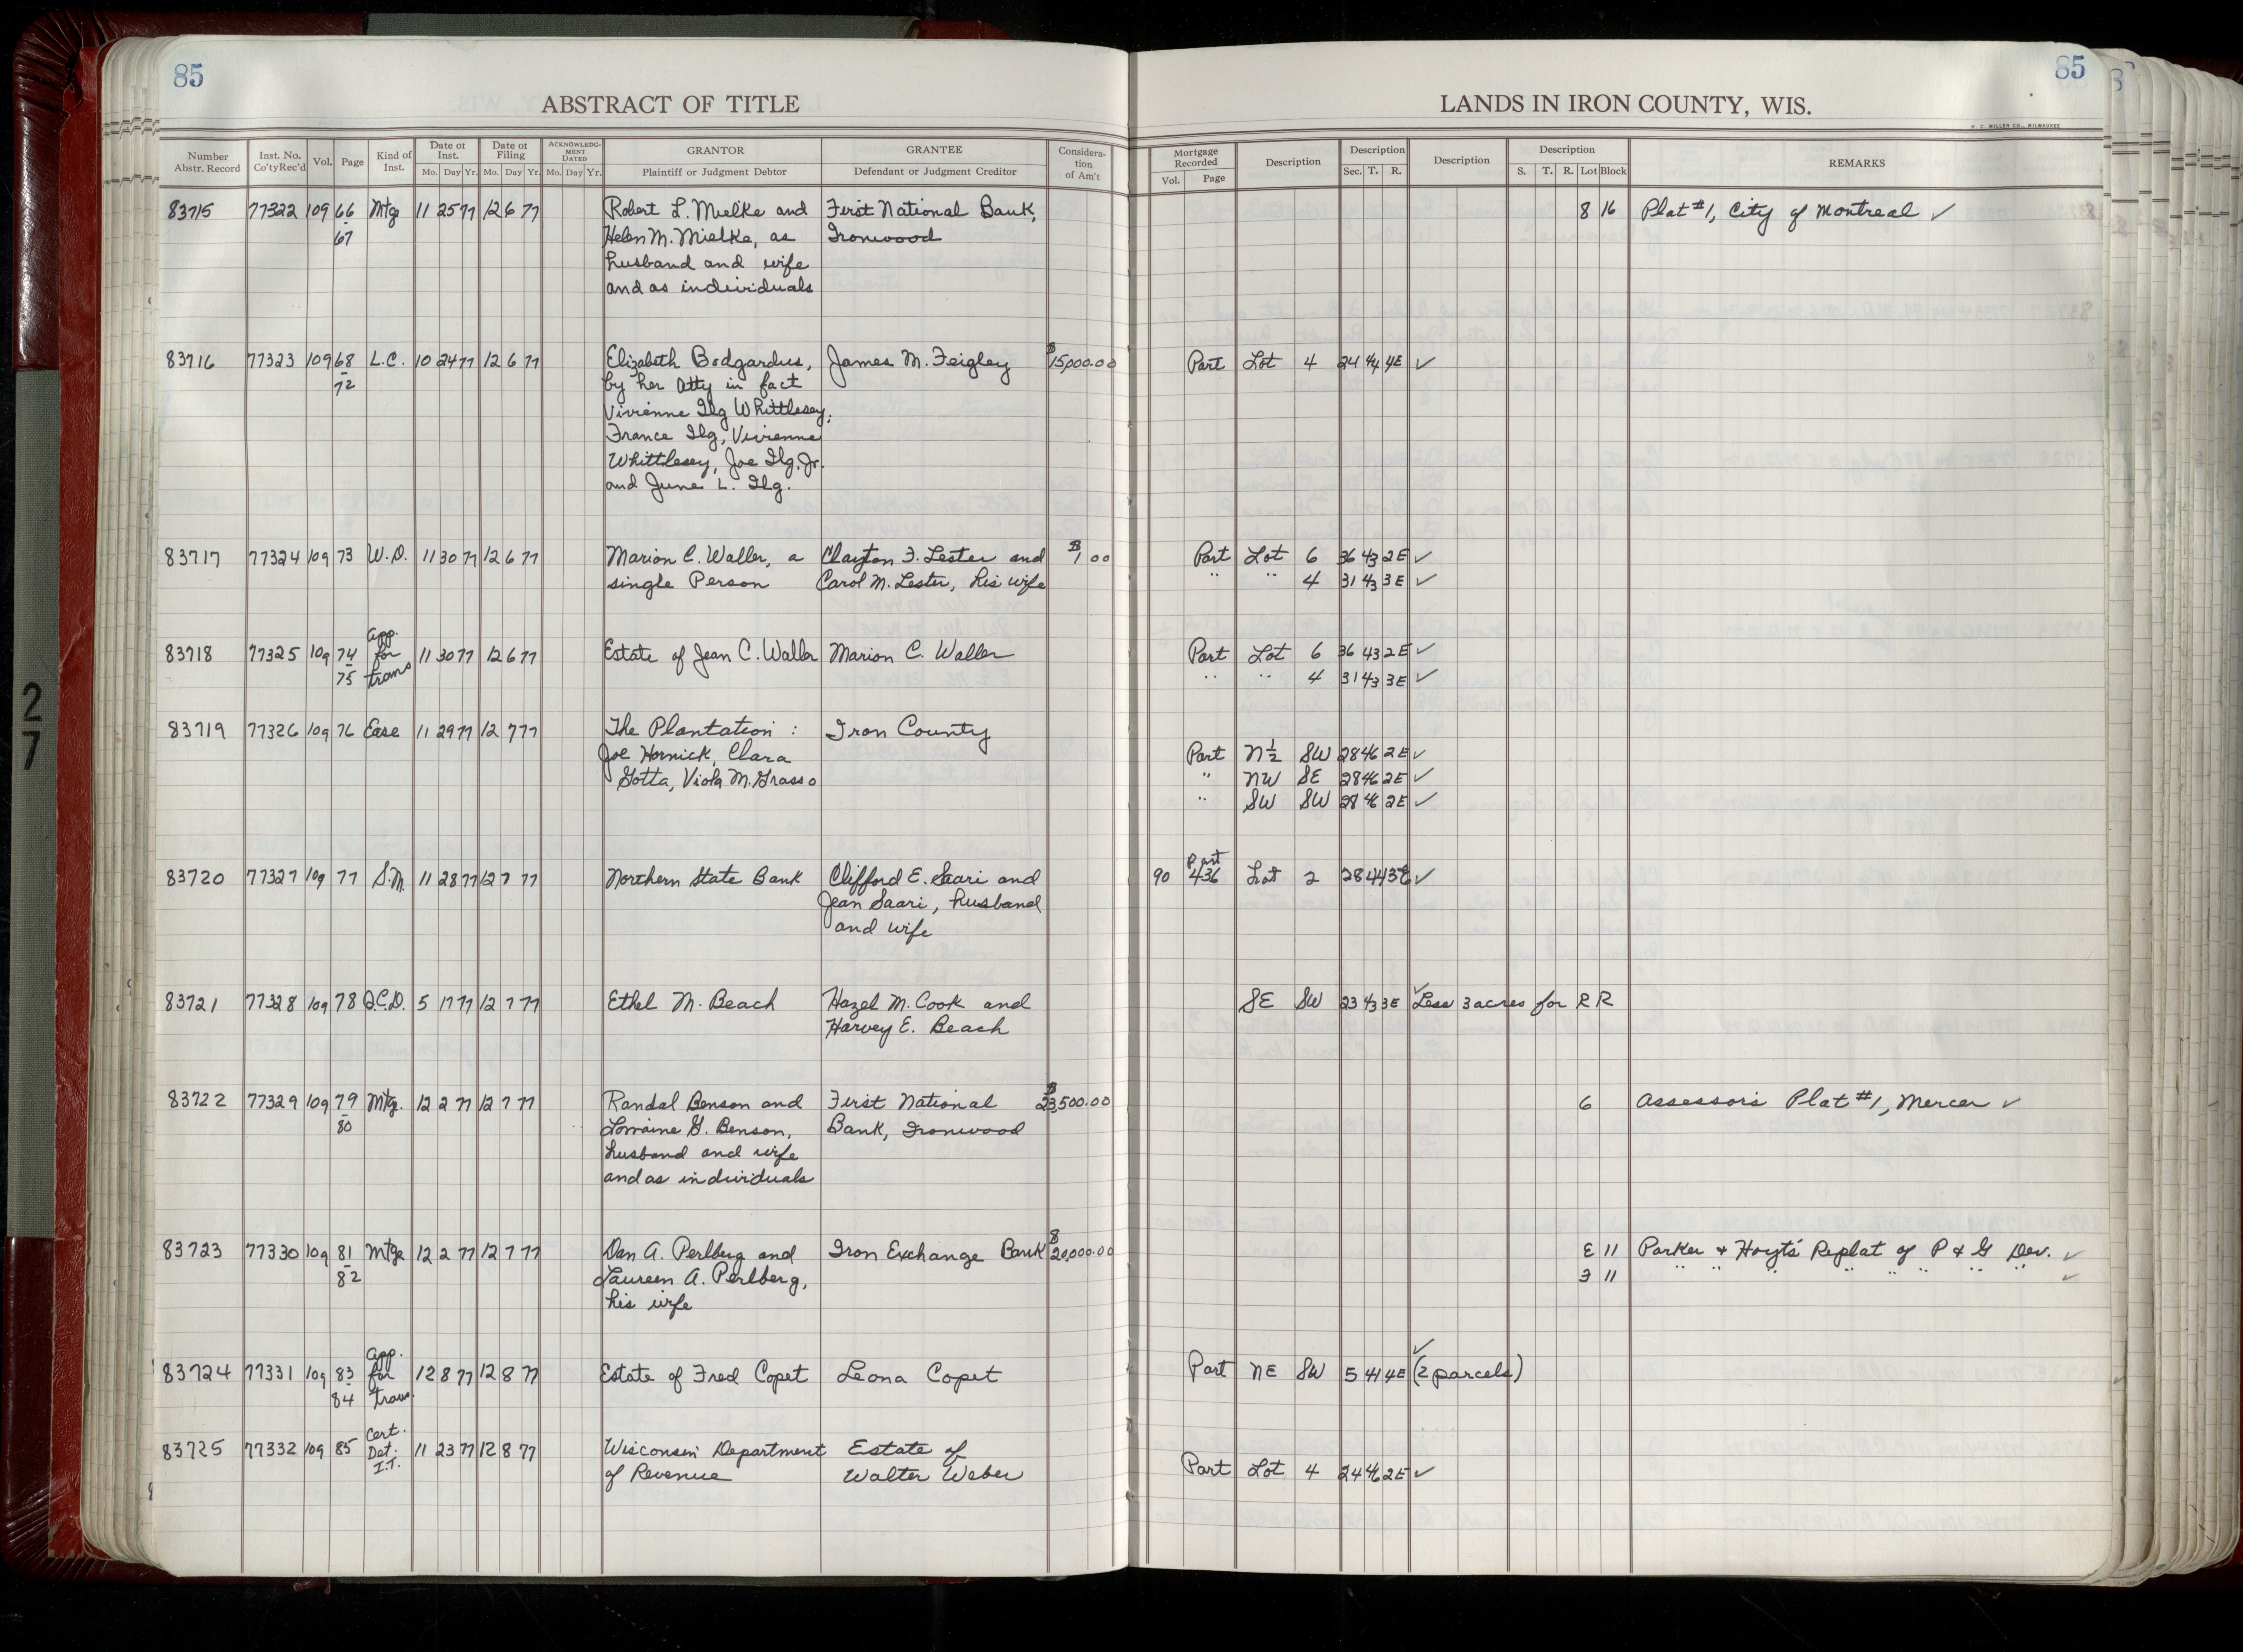 85
85
ABSTRACT OF TITLE
LANDS IN IRON COUNTY, WIS.
H. C. MILLER CO., MILWAUKEE
Number Abstr. Record
Inst. No. Co'tyRec'd
Vol.
Page
Kind of Inst.
Date of Inst.
Mo. Day Yr.
Date of Filing
Mo. Day Yr.
ACKNOWLEDGMENT DATED
Mo. Day Yr.
GRANTOR
Plaintiff or Judgment Debtor
GRANTEE
Defendant or Judgment Creditor
Consideration of Am't
Mortgage Recorded
Vol. Page
Description
Description
Sec. T. R.
Description
Description
S. T. R. Lot Block
REMARKS
83715 77322 109 66 Mtge 11 25 77 12 6 77 Robert L. Mielke and First National Bank, 8 16 Plat #1, City of Montreal ✓
67 Helen M. Mielke, as Ironwood
husband and wife
and as individuals
83716 77323 109 68 L.C. 10 24 77 12 6 77 Elizabeth Bodgardus, James M. Feigley $15,000.00 Part Lot 4 24 44 4E ✓
72 by her Atty in fact
Vivienne Ilg Whittlesey;
France Ilg, Vivienne
Whittlesey, Joe Ilg, Jr.
and June L. Ilg.
83717 77324 109 73 W.D. 11 30 77 12 6 77 Marion C. Waller, a Clayton F. Lester and $1 00 Part Lot 6 36 43 2E ✓
single Person Carol M. Lester, his wife " " 4 31 43 3E ✓
App.
83718 77325 109 74 for 11 30 77 12 6 77 Estate of Jean C. Waller Marion C. Waller Part Lot 6 36 43 2E ✓
75 trans " " 4 31 43 3E ✓
83719 77326 109 76 Ease 11 29 77 12 7 77 The Plantation : Iron County
Joe Hornick, Clara Part N½ SW 28 46 2E ✓
Gotta, Viola M. Grasso " NW SE 28 46 2E ✓
" SW SW 28 46 2E ✓
Part
83720 77327 109 77 S.M. 11 28 77 12 7 77 Northern State Bank Clifford E. Saari and 90 436 Lot 2 28 44 3E ✓
Jean Saari, husband
and wife
83721 77328 109 78 Q.C.D. 5 17 77 12 7 77 Ethel M. Beach Hazel M. Cook and SE SW 23 43 3E ✓ Less 3 acres for R R
Harvey E. Beach
83722 77329 109 79 Mtg. 12 2 77 12 7 77 Randal Benson and First National $23,500.00 6 Assessor's Plat #1, Mercer ✓
80 Lorraine G. Benson, Bank, Ironwood
husband and wife
and as individuals
83723 77330 109 81 Mtge 12 2 77 12 7 77 Dan A. Perlberg and Iron Exchange Bank $20,000.00 E 11 Parker & Hoyts' Replat of P & G Dev. ✓
82 Laureen A. Perlberg, F 11 " " " " " " " " ✓
his wife
App.
83724 77331 109 83 for 12 8 77 12 8 77 Estate of Fred Copet Leona Copet Part NE SW 5 41 4E (2 parcels) ✓
84 trans.
Cert.
83725 77332 109 85 Det. 11 23 77 12 8 77 Wisconsin Department Estate of
I.T. of Revenue Walter Weber Part Lot 4 24 46 2E ✓
27